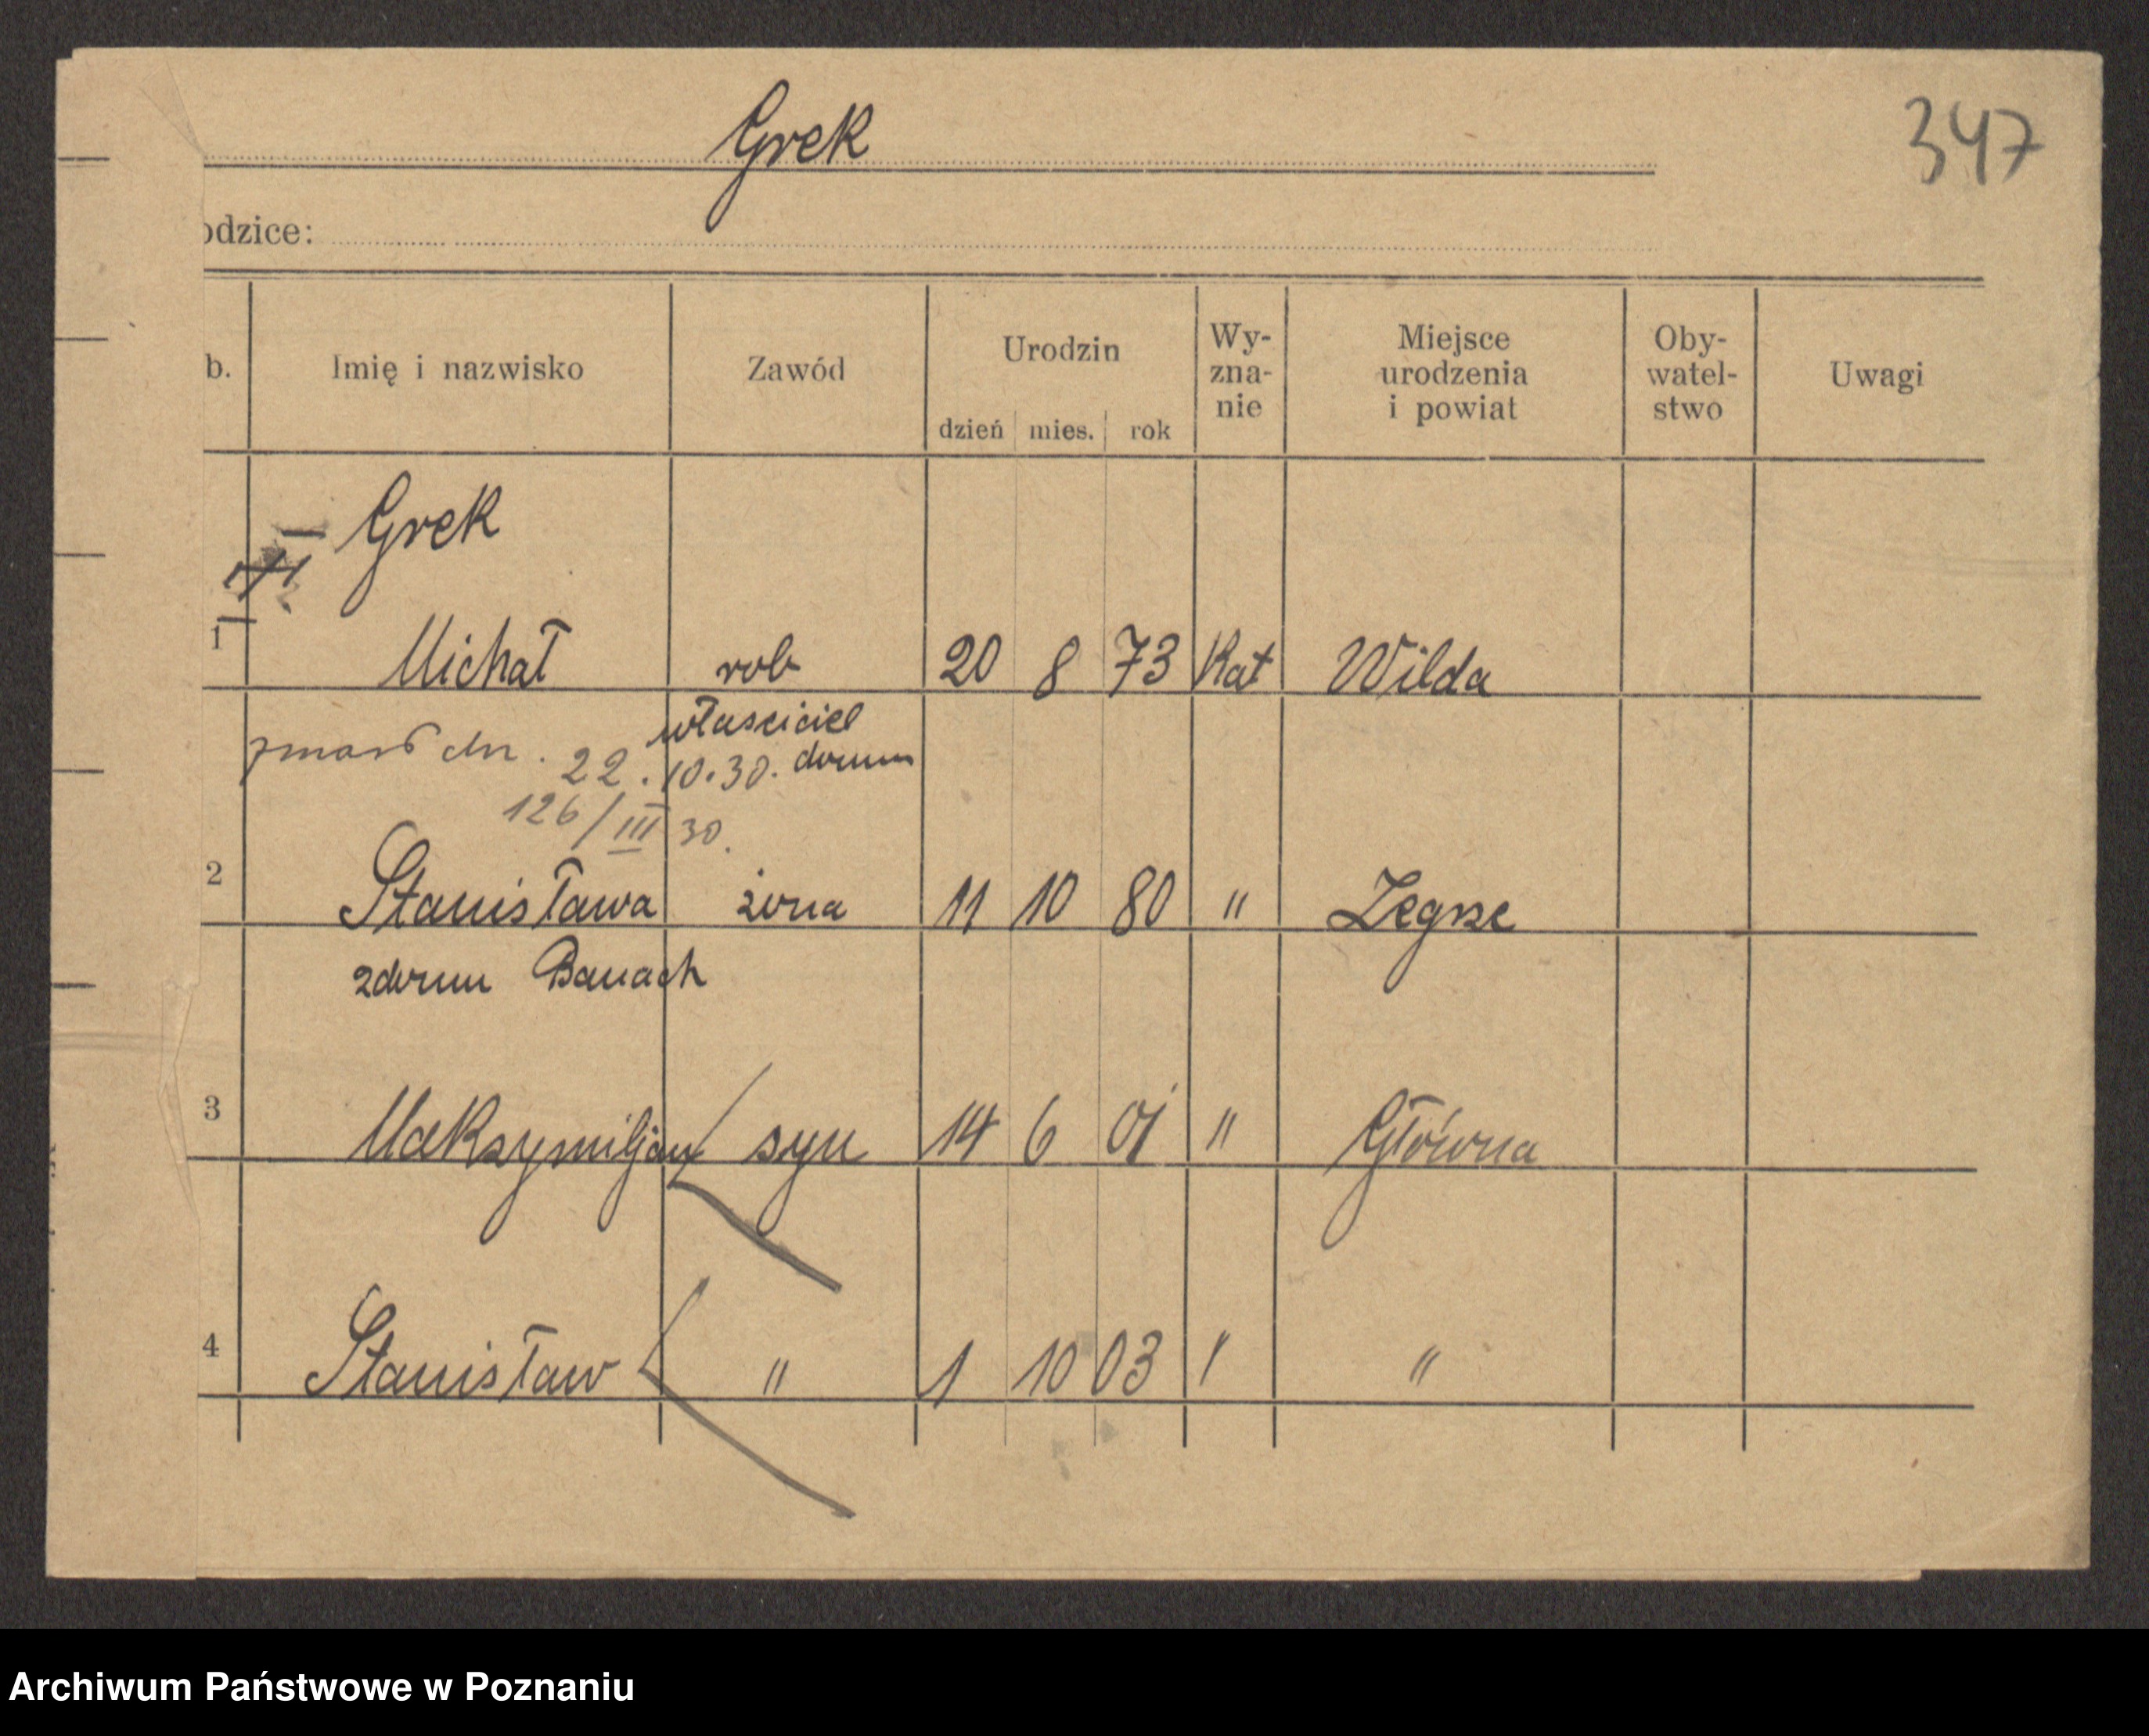 Grek
347
odzice:
b. Imię i nazwisko Zawód Urodzin dzień mies. rok Wy-zna-nie Miejsce urodzenia i powiat Oby-watel-stwo Uwagi
Grek
1 Michał rob 20 8 73 Kat Wilda
właściciel
zmarł dn. 22.10.30. domu
126/III 30.
2 Stanisława żona 11 10 80 " Zegrze
zdomu Banach
3 Maksymiljan syn 14 6 01 " Główna
4 Stanisław " 1 10 03 " "
Archiwum Państwowe w Poznaniu